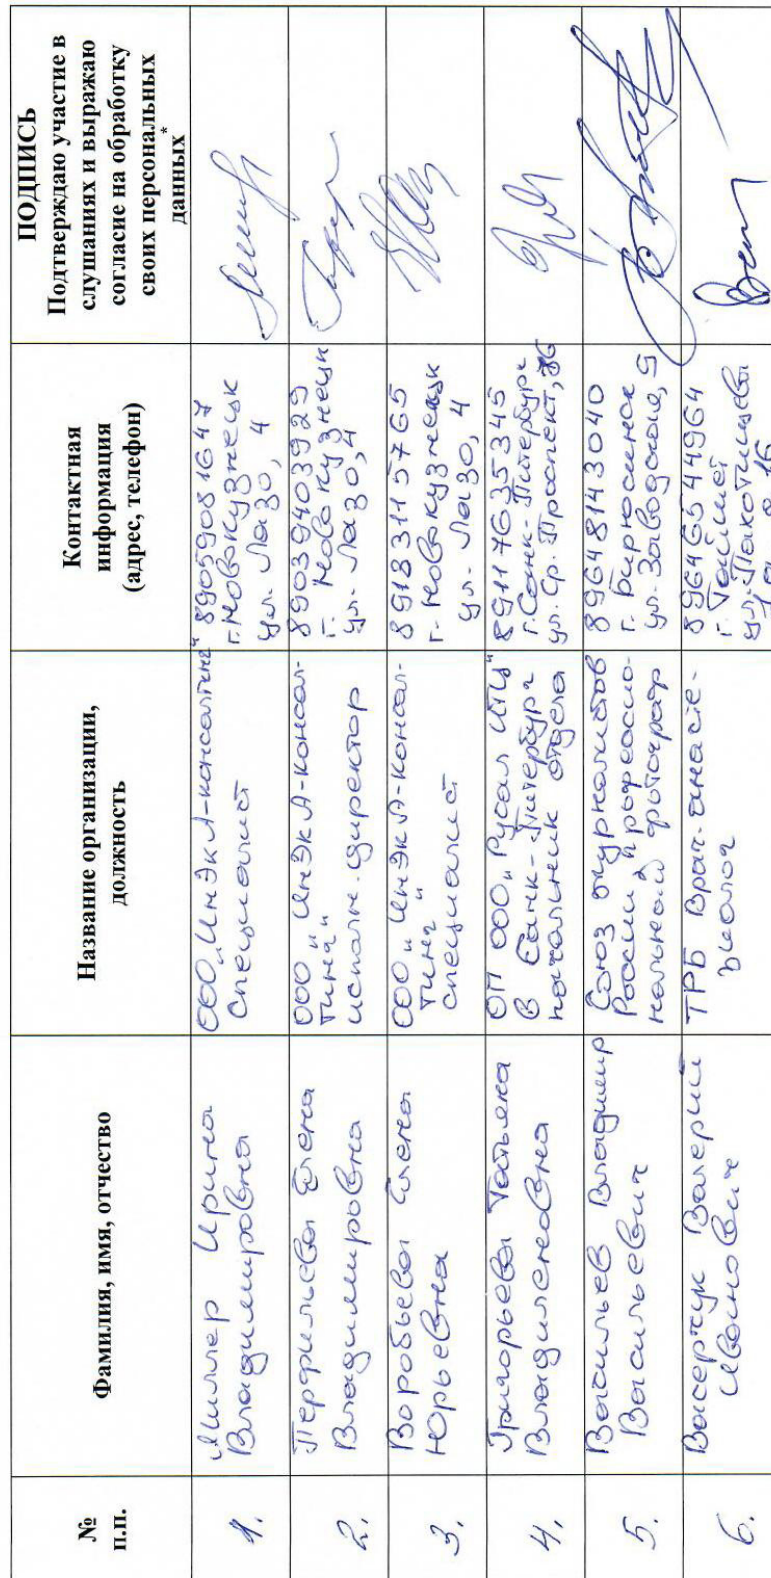 №
п.п.
Фамилия, имя, отчество
Название организации,
должность
Контактная
информация
(адрес, телефон)
ПОДПИСЬ
Подтверждаю участие в
слушаниях и выражаю
согласие на обработку
своих персональных
данных*
1.
Миллер Ирина
Владимировна
ООО „ИнЭкА-консалтинг"
Специалист
89059081647
г. Новокузнецк
ул. Лазо, 4
2.
Перфильева Елена
Владимировна
ООО „ИнЭкА-консал-
тинг"
исполн. директор
89039403929
г. Новокузнецк
ул. Лазо, 4
3.
Воробьева Елена
Юрьевна
ООО „ИнЭкА-консал-
тинг"
специалист
89183115765
г. Новокузнецк
ул. Лазо, 4
4.
Григорьева Татьяна
Владиленовна
ОП ООО „Русал ИТЦ"
в Санк-Питербург
начальник отдела
89117635345
г. Санк-Питербург
ул. Ср. Проспект, 86
5.
Васильев Владимир
Васильевич
Союз журналистов
России, професcио-
нальный фотограф
89648143040
г. Бирюсинск
ул. Заводская, 5
6.
Васерчук Валерий
Иванович
ТРБ Врач-анасте-
зиолог
89646544964
г. Тайшет